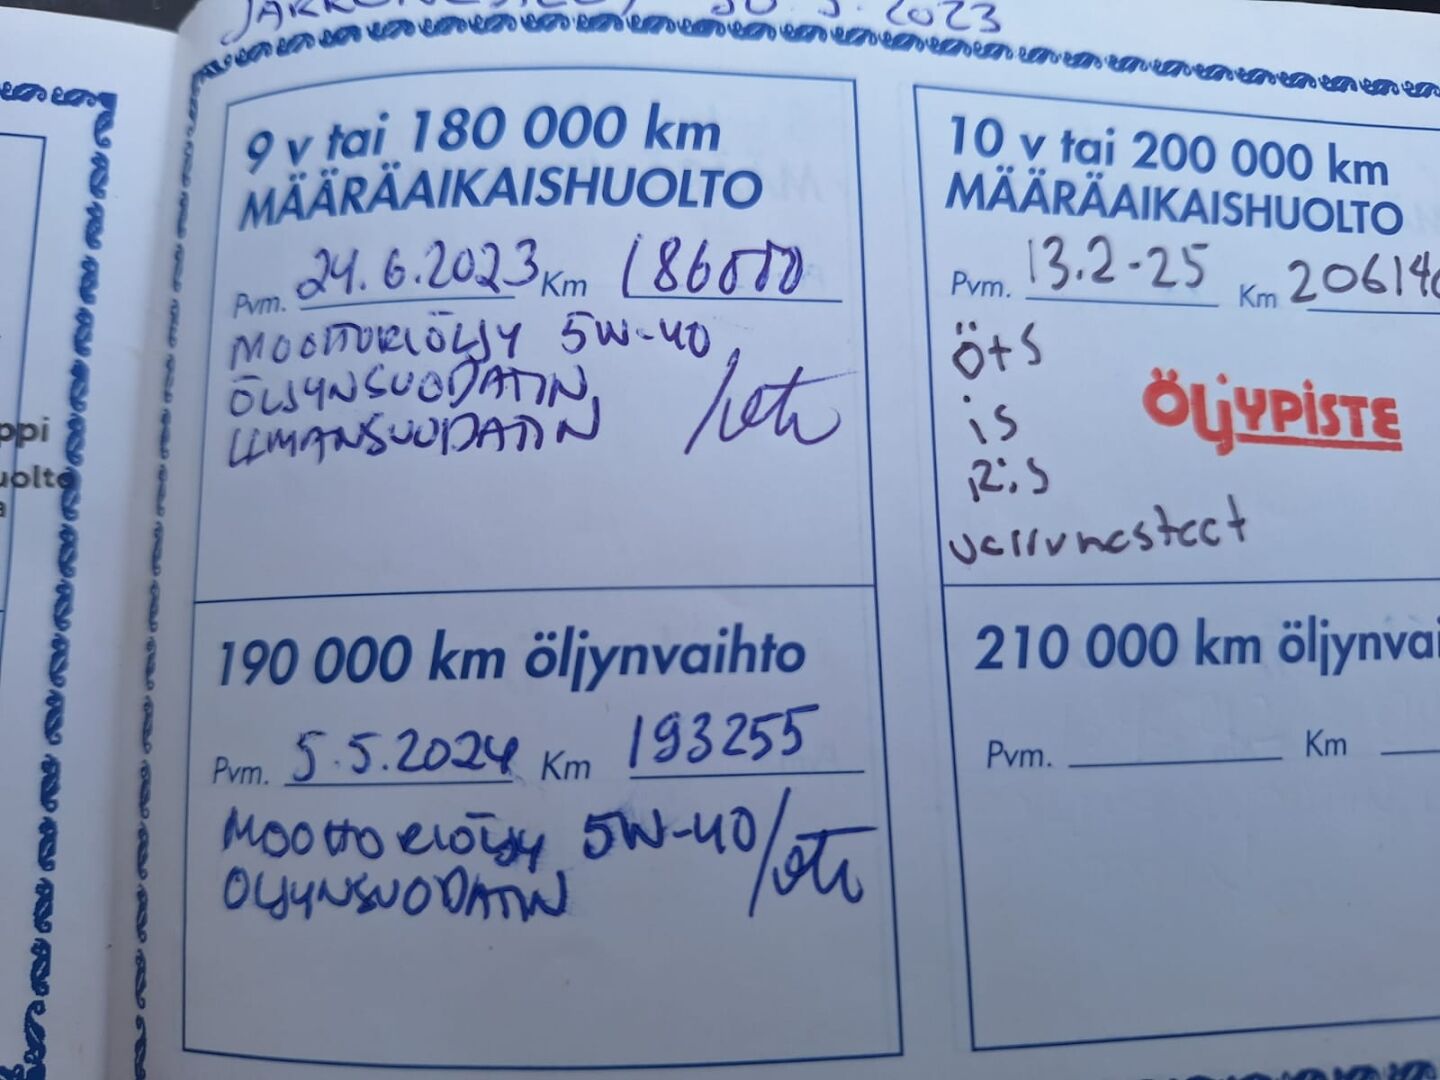 30.5.2023
9 v tai 180 000 km
MÄÄRÄAIKAISHUOLTO
Pvm. 24.6.2023 Km 186000
MOOTTORIÖLJY 5W-40
ÖLJYNSUODATIN
ILMANSUODATIN
190 000 km öljynvaihto
Pvm. 5.5.2024 Km 193255
MOOTTORIÖLJY 5W-40
ÖLJYNSUODATIN
10 v tai 200 000 km
MÄÄRÄAIKAISHUOLTO
Pvm. 13.2-25 Km 20614
ÖtS
is
R.S
ÖLJYPISTE
Jarrunesteet
210 000 km öljynvai
Pvm. Km
ppi
uolto
a